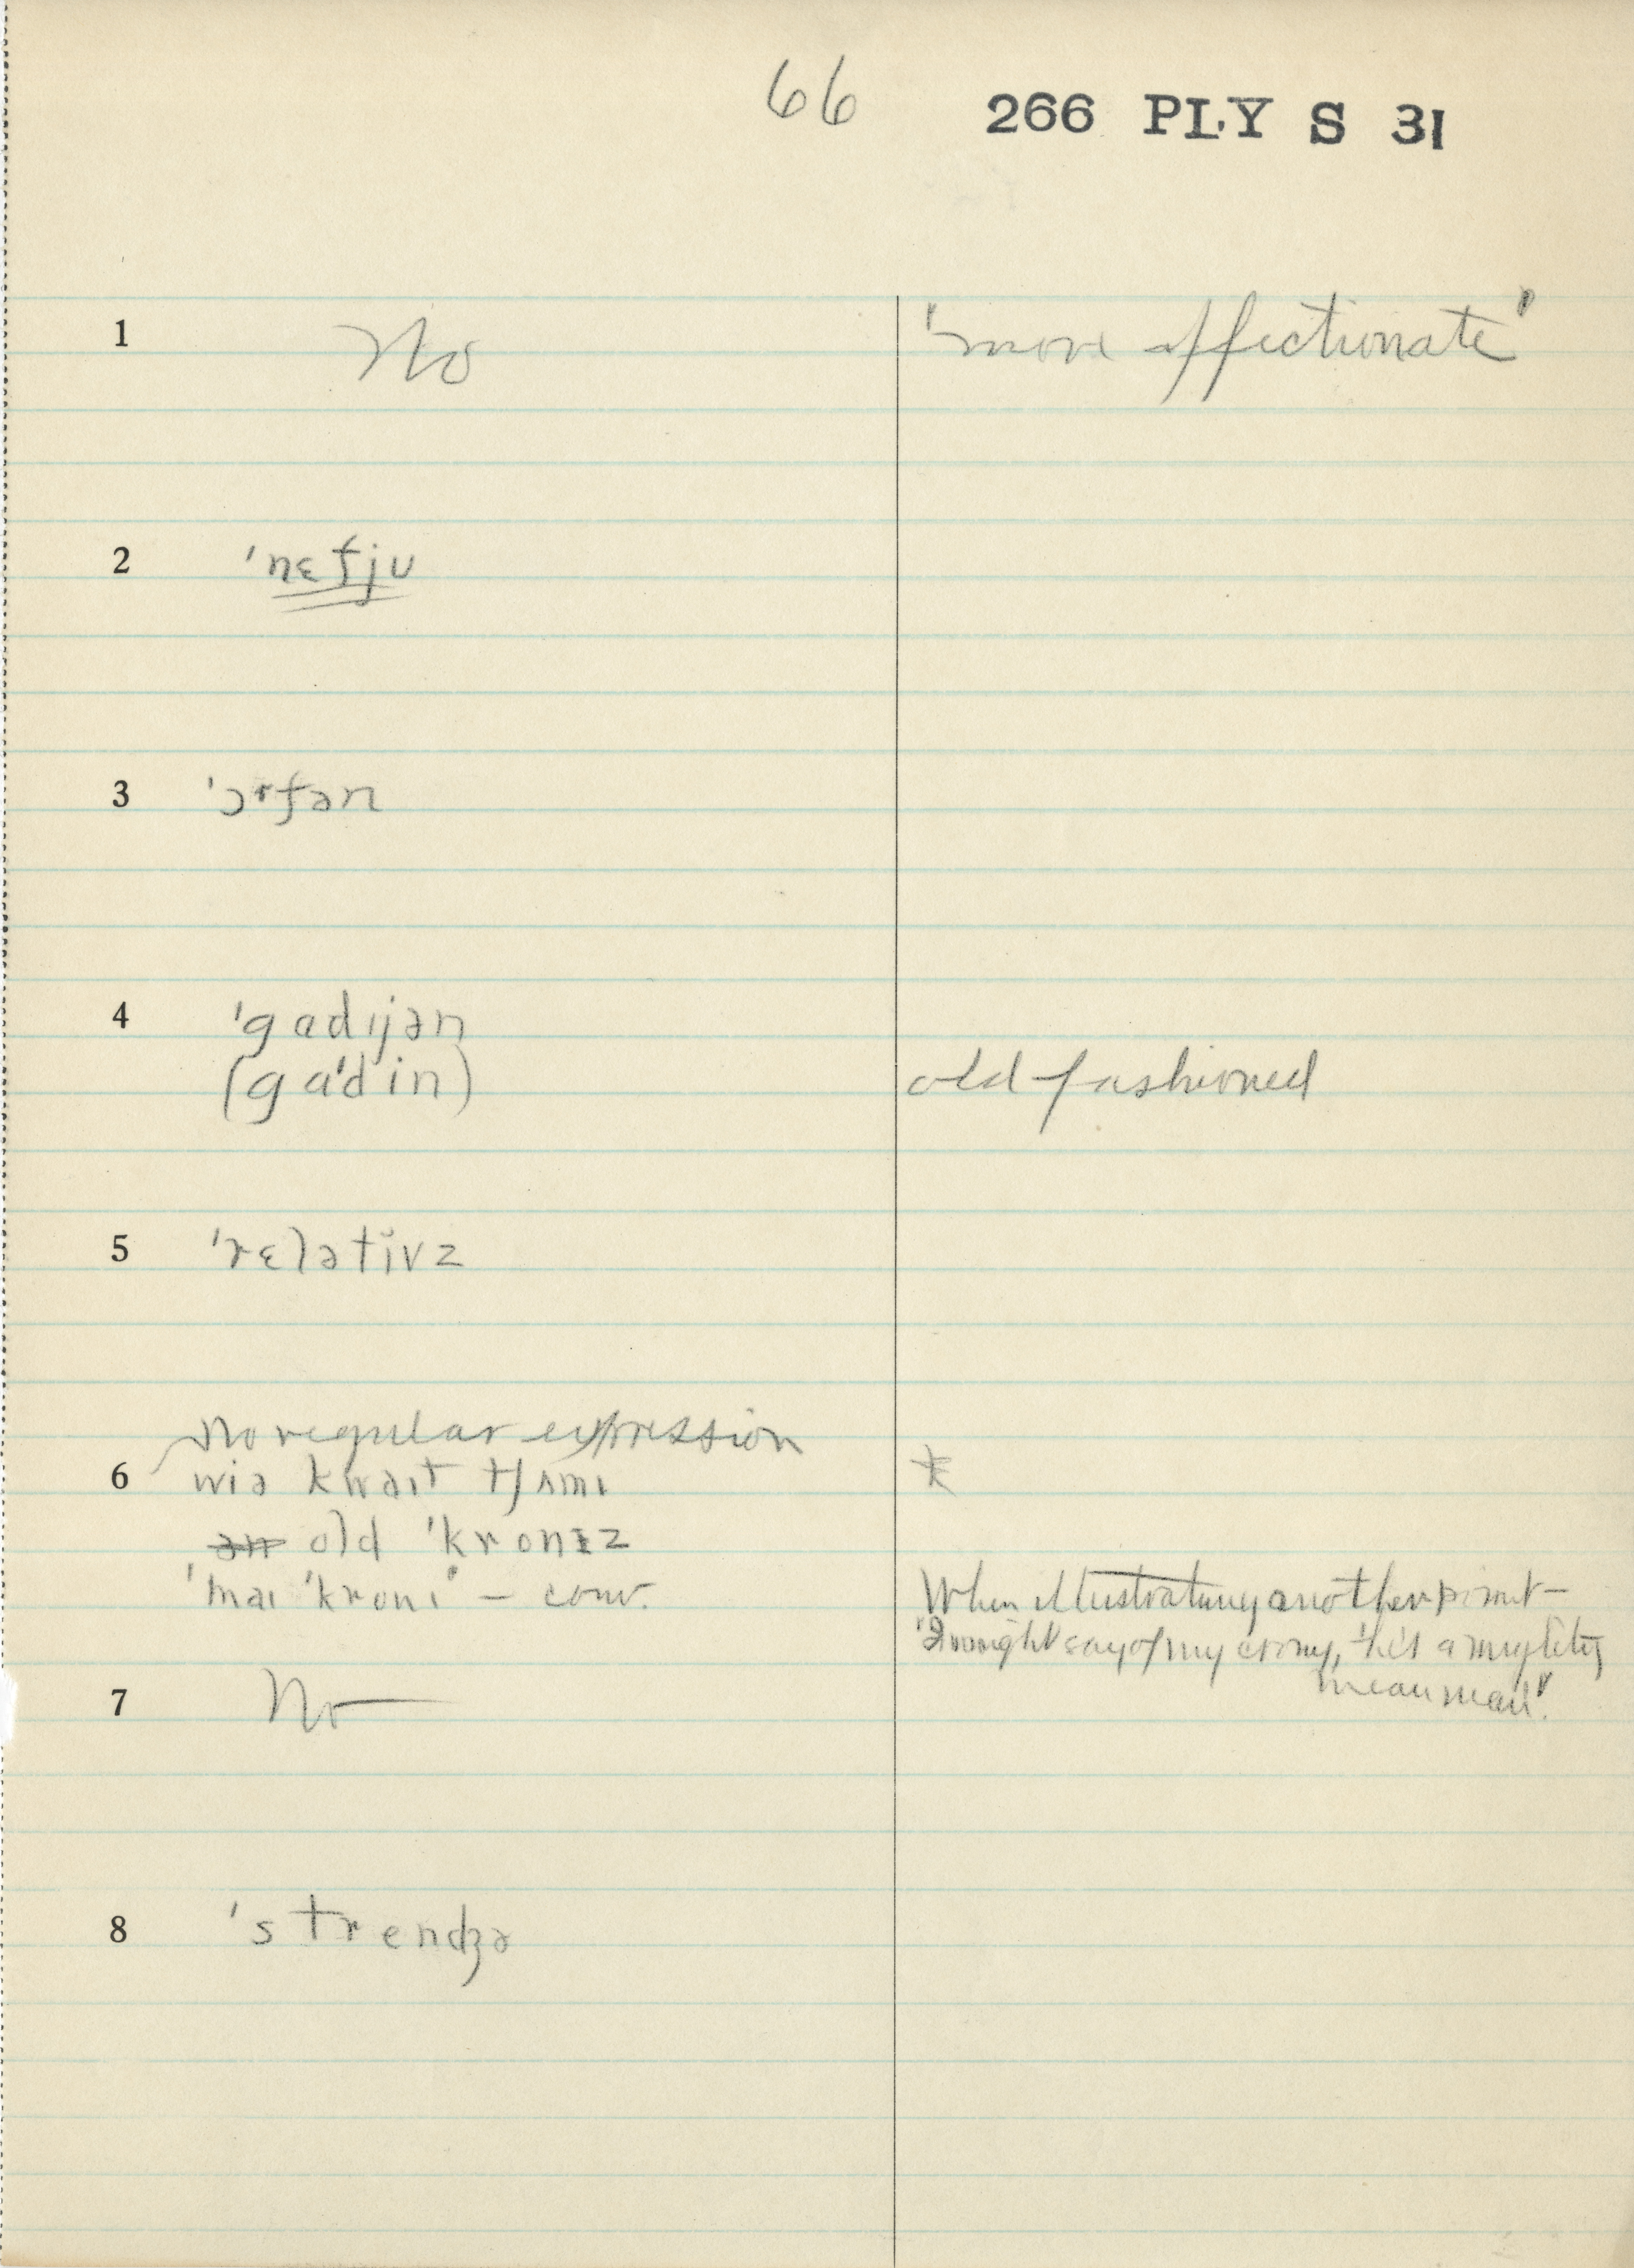 66 266 PLY S 31
1 No "more affectionate"
2 ˈnɛfju
3 ˈɔrfən
4 ˈgadɪjən
(gaˈdin) old fashioned
5 ˈrɛlətivz
no regular expression
6 wiə kwaɪt tʃʌmɪ
ən old ˈkronɪz
ˈmaɪ ˈkronɪ" – conv.
When illustrating another point –
"I might say of my crony, 'he's a mighty
mean man'".
7 No
8 ˈstrendʒə